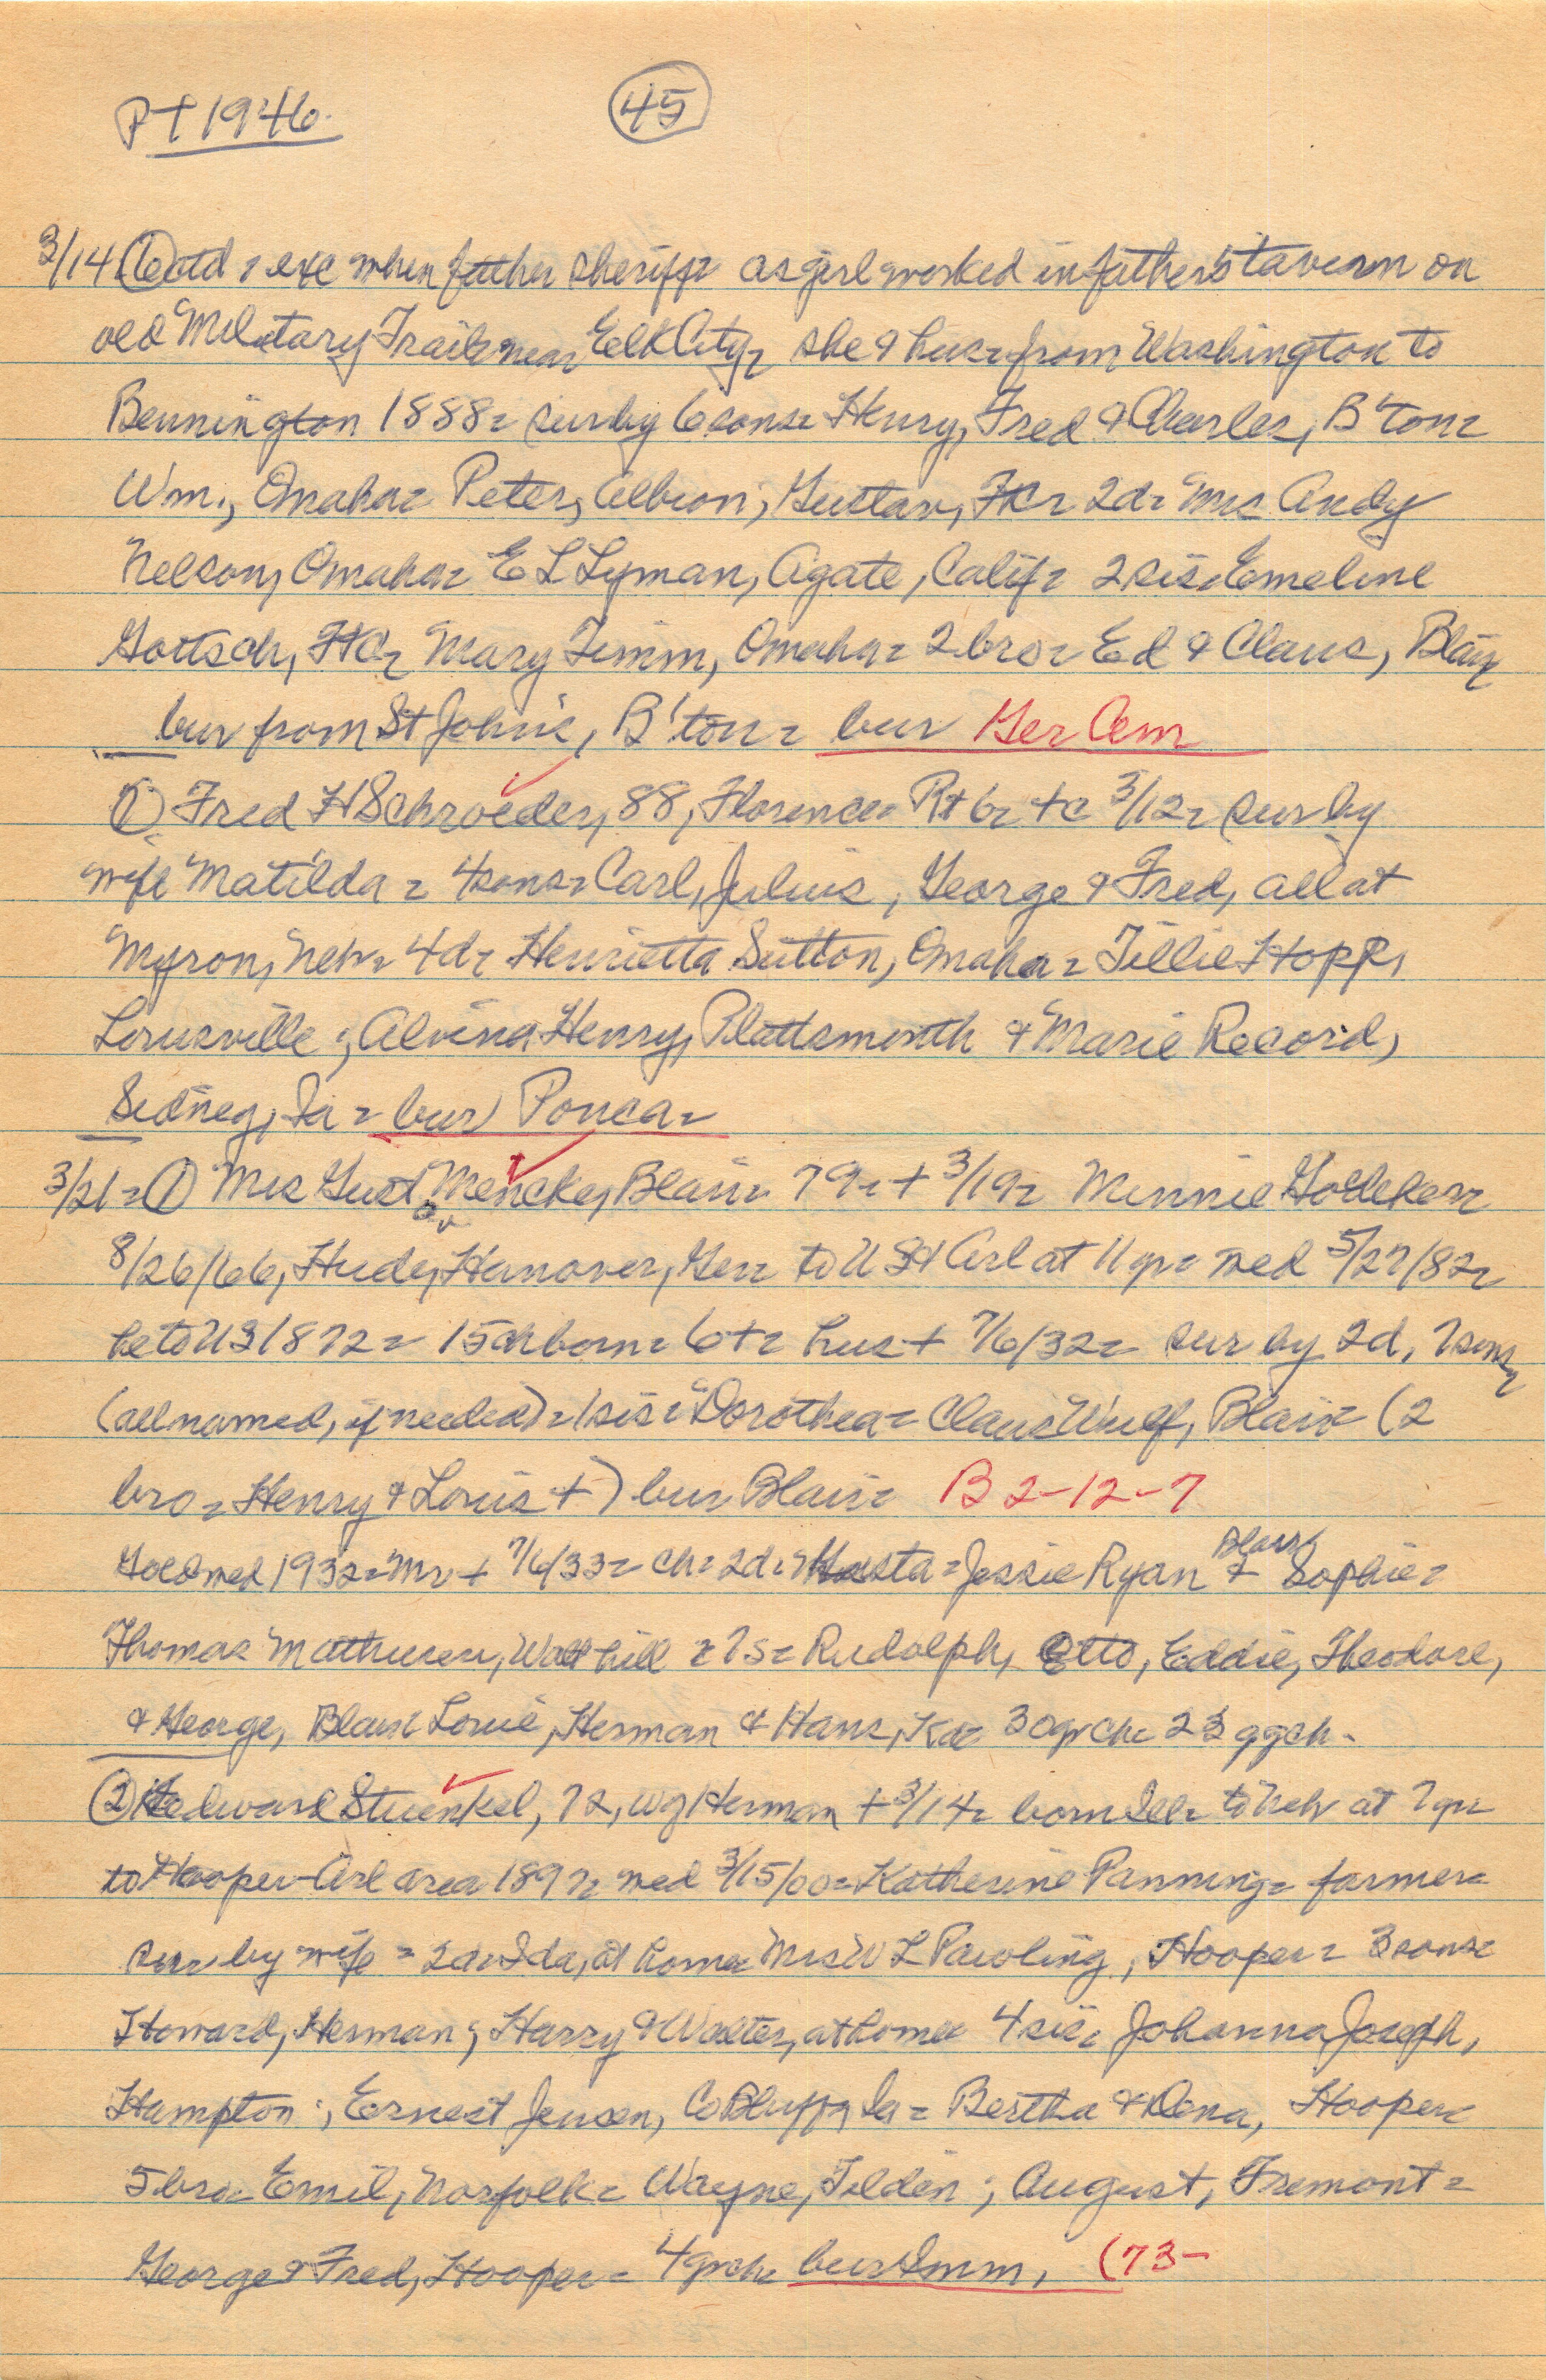 Pt 1946.
45
3/14 (6 ctd = exc when father sheriff = as girl worked in father's tavern on
old Military Trail near Elk City = she & hus = from Washington to
Bennington 1888 = sur by 6 sons = Henry, Fred & Charles, B'ton =
Wm., Omaha = Peter, Albion; Gustav, FtC = 2d = Mrs Andy
Nelson, Omaha = E L Lyman, Agate, Calif = 2 sis = Emeline
Gottsch, FtC = Mary Timm, Omaha = 2 bro = Ed & Claus, Blair =
bur from St John's, B'ton = bur Ger Cem
(7) Fred H Schroeder, 88, Florence Rt 6 = + c 3/12 = sur by
wife Matilda = 4 sons = Carl, Julius, George & Fred, all at
Myron, Neb = 4d = Henrietta Sutton, Omaha = Tillie Hopp,
Louisville; Alvina Henry, Plattsmouth & Marie Record,
Sidney, Ia = bur Ponca =
3/21 = (1) Mrs Gust Mencke, Blair = 79 = + 3/19 = Minnie =
8/26/66, Hanover, Ger = to US & Arl at 11 yr = med 5/27/82 =
he to US 1872 = 15 ch born = 6+ = hus + 7/6/32 = sur by 2d, 7 sons =
(all named, if needed) = 1 sis = Dorothea = Claus Wulf, Blair = (2
bro = Henry & Louis +) bur Blair = B 2-12-7
Gold wed 1932 = Mr + 7/6/33 = ch = 2d = = Jessie Ryan Blair & Sophie =
Thomas Mathiesen, Walthill = 7s = Rudolph, Otto, Eddie, Theodore,
& George, Blair = Louie, Herman & Hans, K = 30 gr ch = 23 ggch.
(2) Edward Stuenkel, 72, w of Herman + 3/14 = born Ill = to Neb at 7 yr =
to Hooper-Arl area 1897 = med 3/15/00 = Katherine Panning = farmer =
sur by wife = 2d = Ida, at home = Mrs W L Pawling, Hooper = 3 sons =
Howard, Herman; Harry & Walter, at home = 4 sis = Johanna Joseph,
Hampton; Ernest Jensen, Co Bluffs, Ia = Bertha & Dena, Hooper =
5 bro = Emil, Norfolk = Wayne, Tilden; August, Fremont =
George & Fred, Hooper = 4 grch = bur Imm, (73-